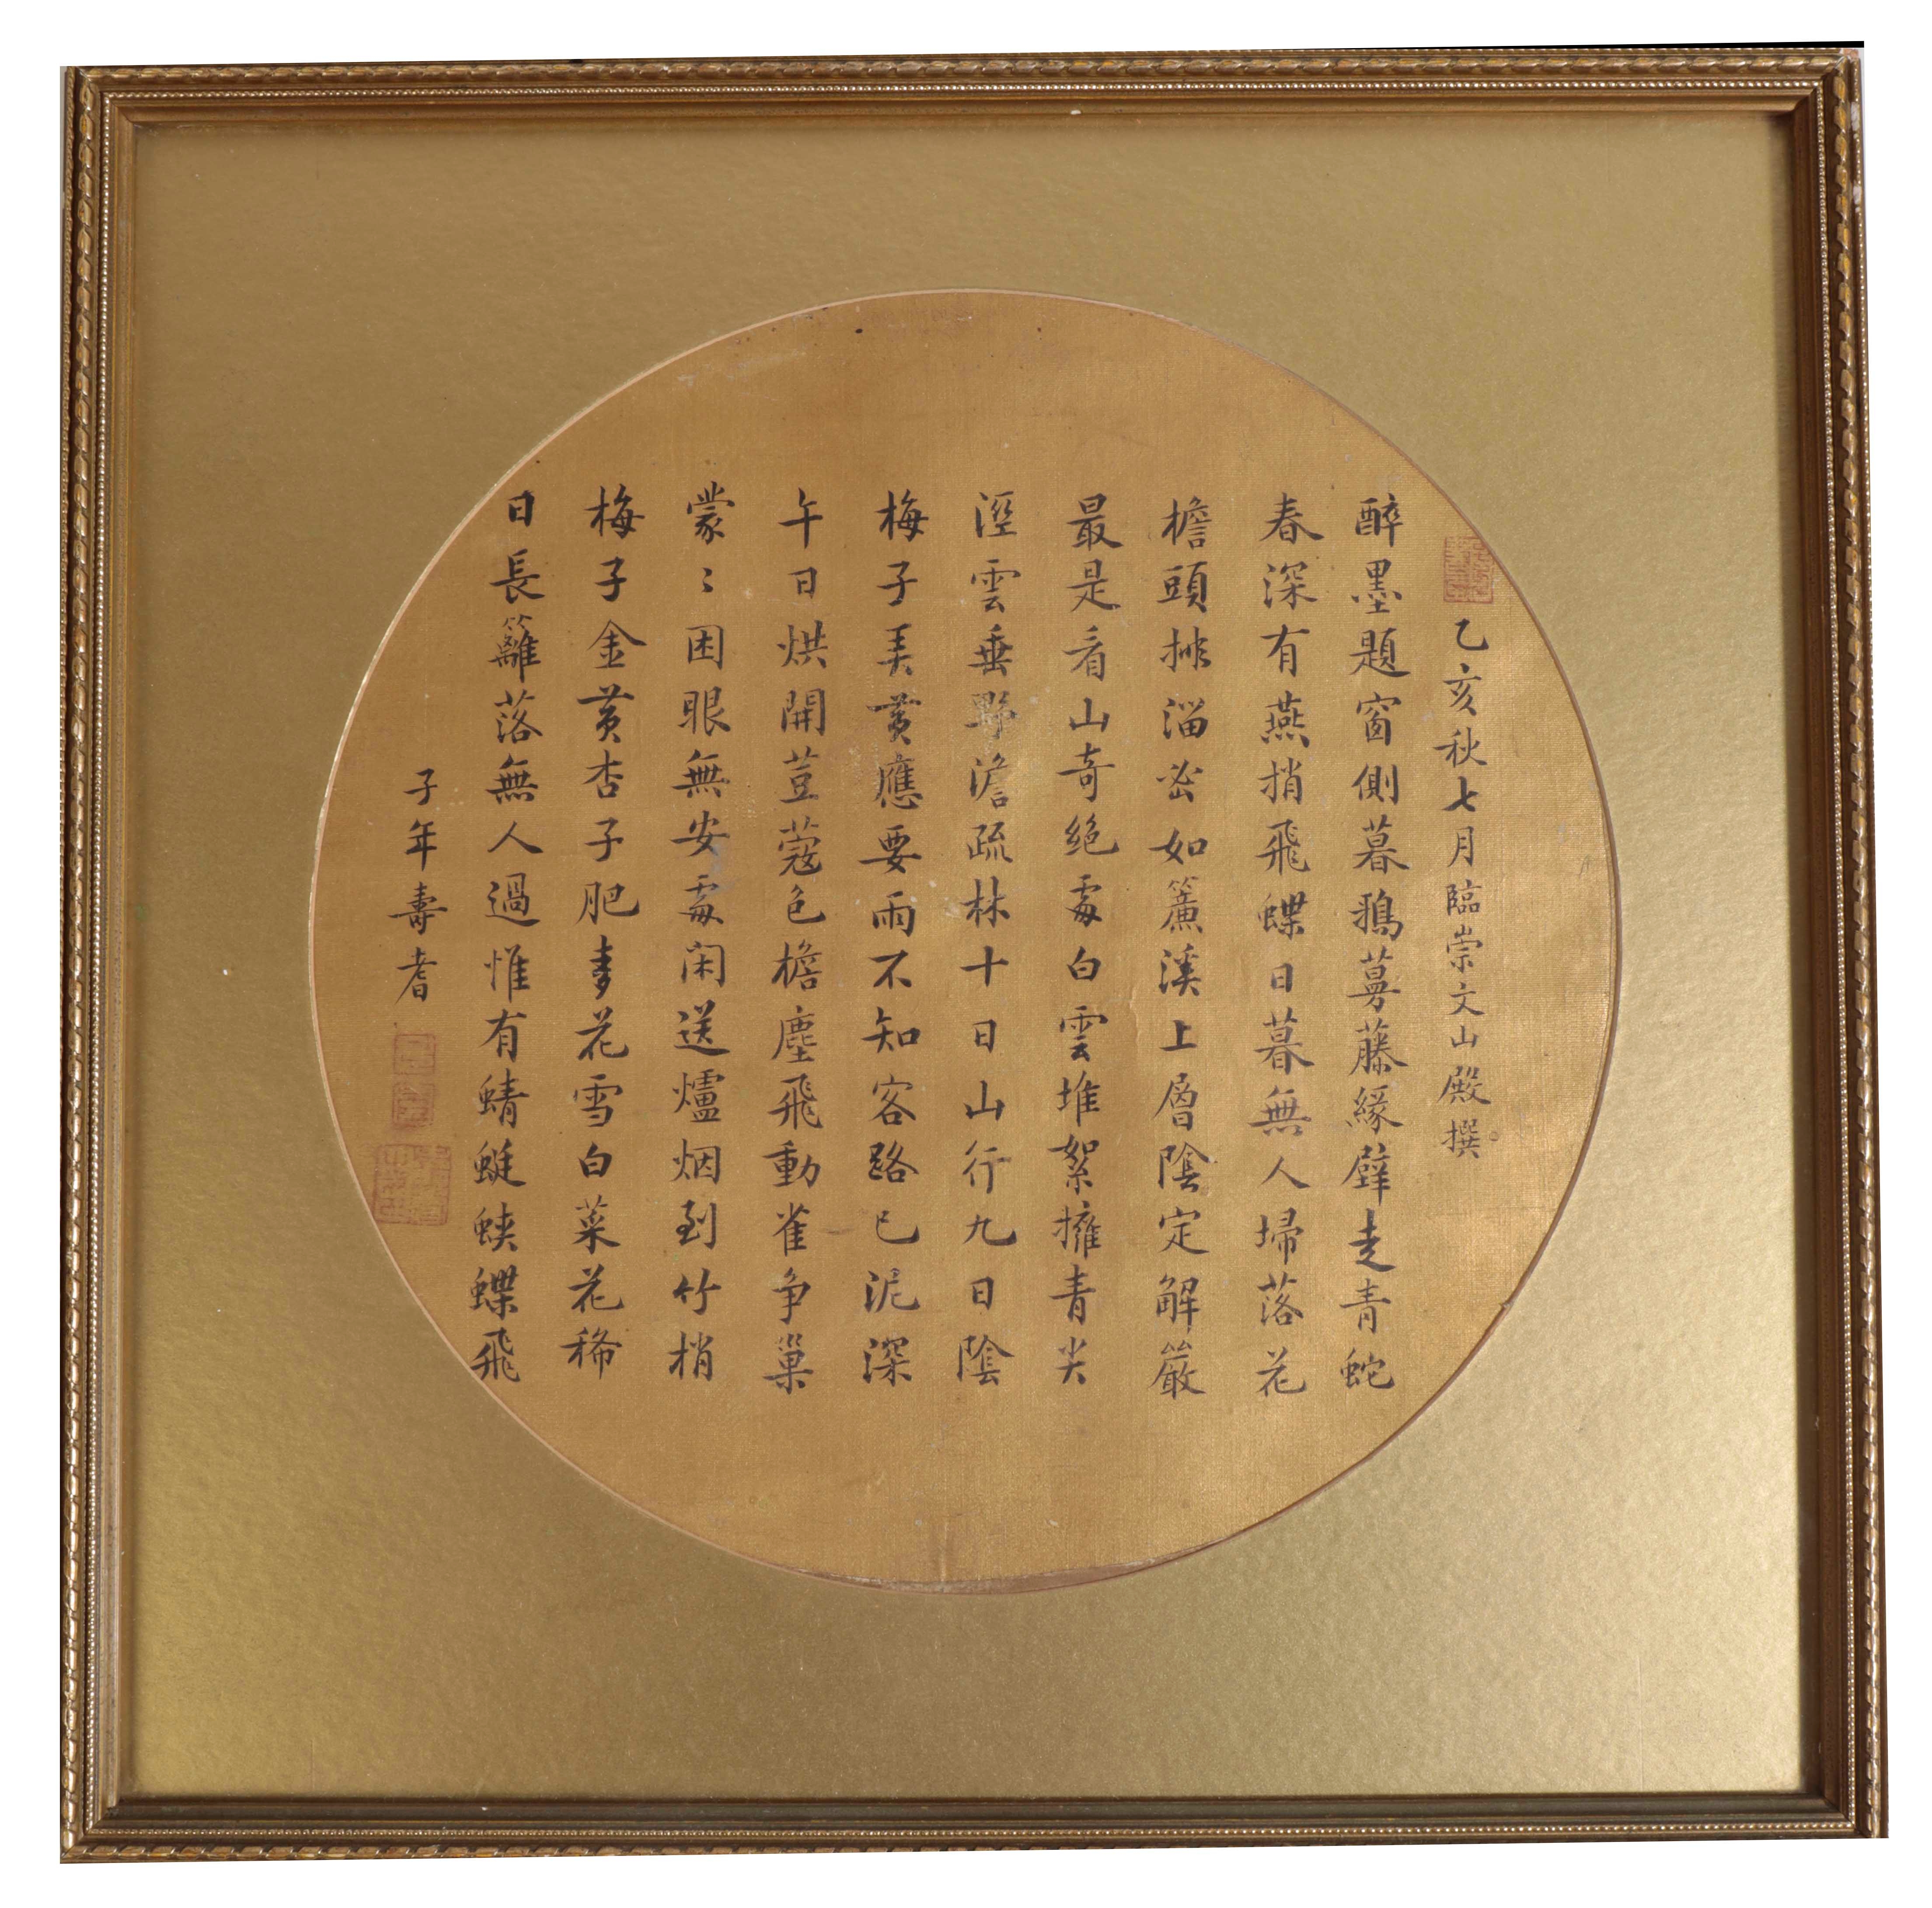 乙亥秋七月臨崇文山殿撰
醉墨題窗側暮鴉蔓藤緣壁走青蛇
春深有燕捎飛蝶日暮無人埽落花
檐頭排溜密如簾溪上層陰定解嚴
最是看山奇絕處白雲堆絮擁青尖
溼雲垂野澹疏林十日山行九日陰
梅子弄黃應要雨不知客路已泥深
午日烘開荳蔻色檐塵飛動雀爭巢
蒙〻困眼無安處閑送爐烟到竹梢
梅子金黃杏子肥麥花雪白菜花稀
日長籬落無人過惟有蜻蜓蛺蝶飛
子年壽耆